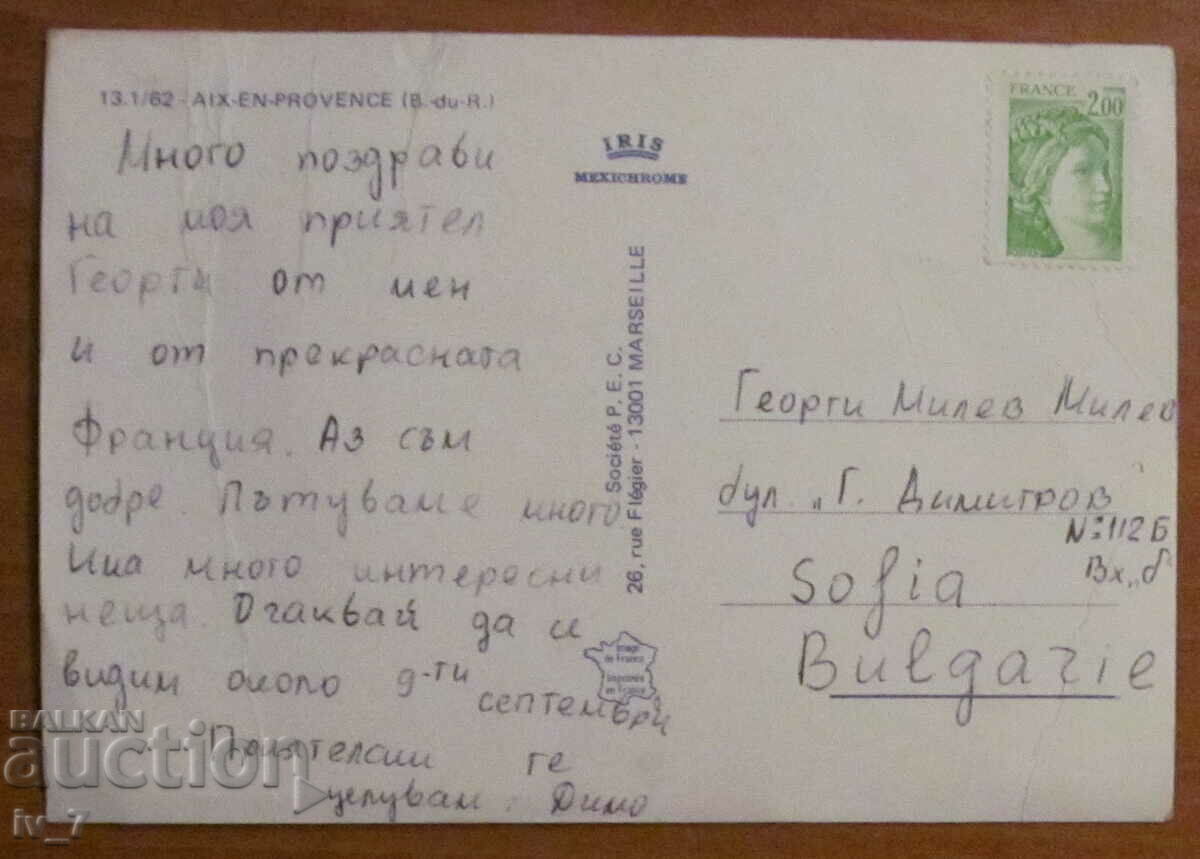 13.1/62 - AIX-EN-PROVENCE (B.-du-R.)
Много поздрави
на моя приятел
Георги от мен
и от прекрасната
Франция. Аз съм
добре. Пътуваме много
Има много интересни
неща. Очаквай да се
видим около 9-ти
септември
Приятелски те
целувам: Димо
IRIS
MEXICHROME
Société P.E.C.
26, rue Flégier - 13001 MARSEILLE
Image
de France
Imprimée
en France
FRANCE
2.00
Георги Милев Милев
бул. „Г. Димитров
№: 112 Б
Вх. „б"
Sofia
Bulgarie
BALKAN
auction
iv_7